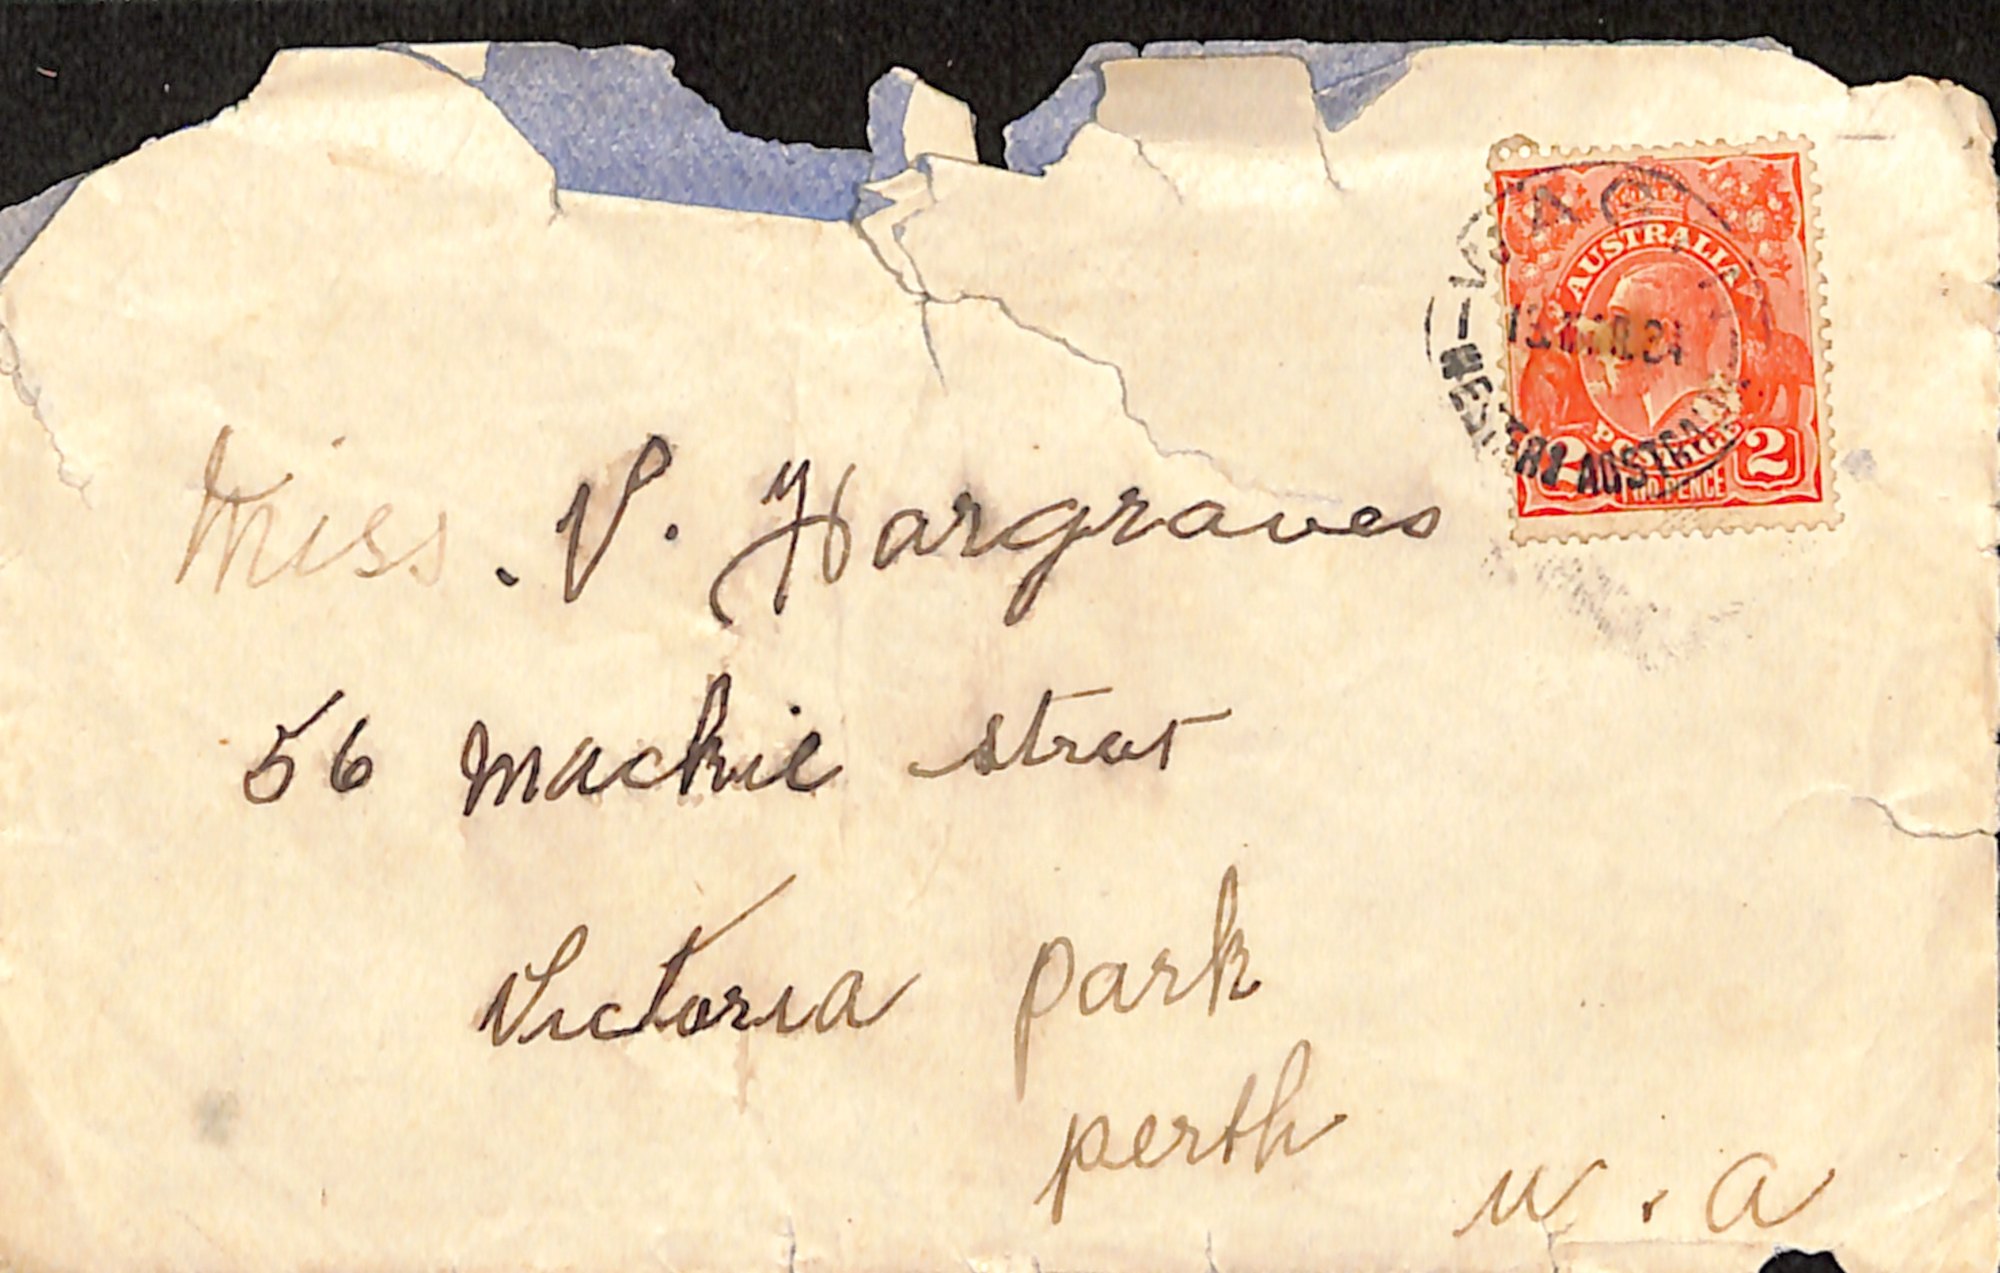 AUSTRALIA
2
TWO PENCE
WESTERN AUSTRALIA
Miss. V. Hargraves
56 Mackie street
Victoria park
perth
W. A